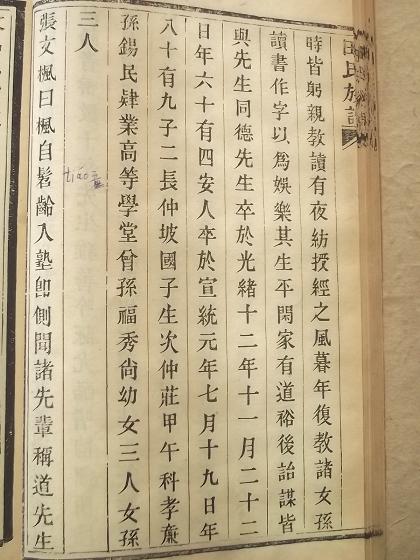 氏族譜
時皆躬親教讀有夜紡授經之風暮年復教諸女孫
讀書作字以爲娛樂其生平閑家有道裕後詒謀皆
與先生同德先生卒於光緒十二年十一月二十二
日年六十有四安人卒於宣統元年七月十九日年
八十有九子二長仲坡國子生次仲莊甲午科孝廉
孫錫民肄業高等學堂曾孫福秀尙幼女三人女孫
三人
張文楓曰楓自髫齡入塾卽側聞諸先輩稱道先生
tiáo